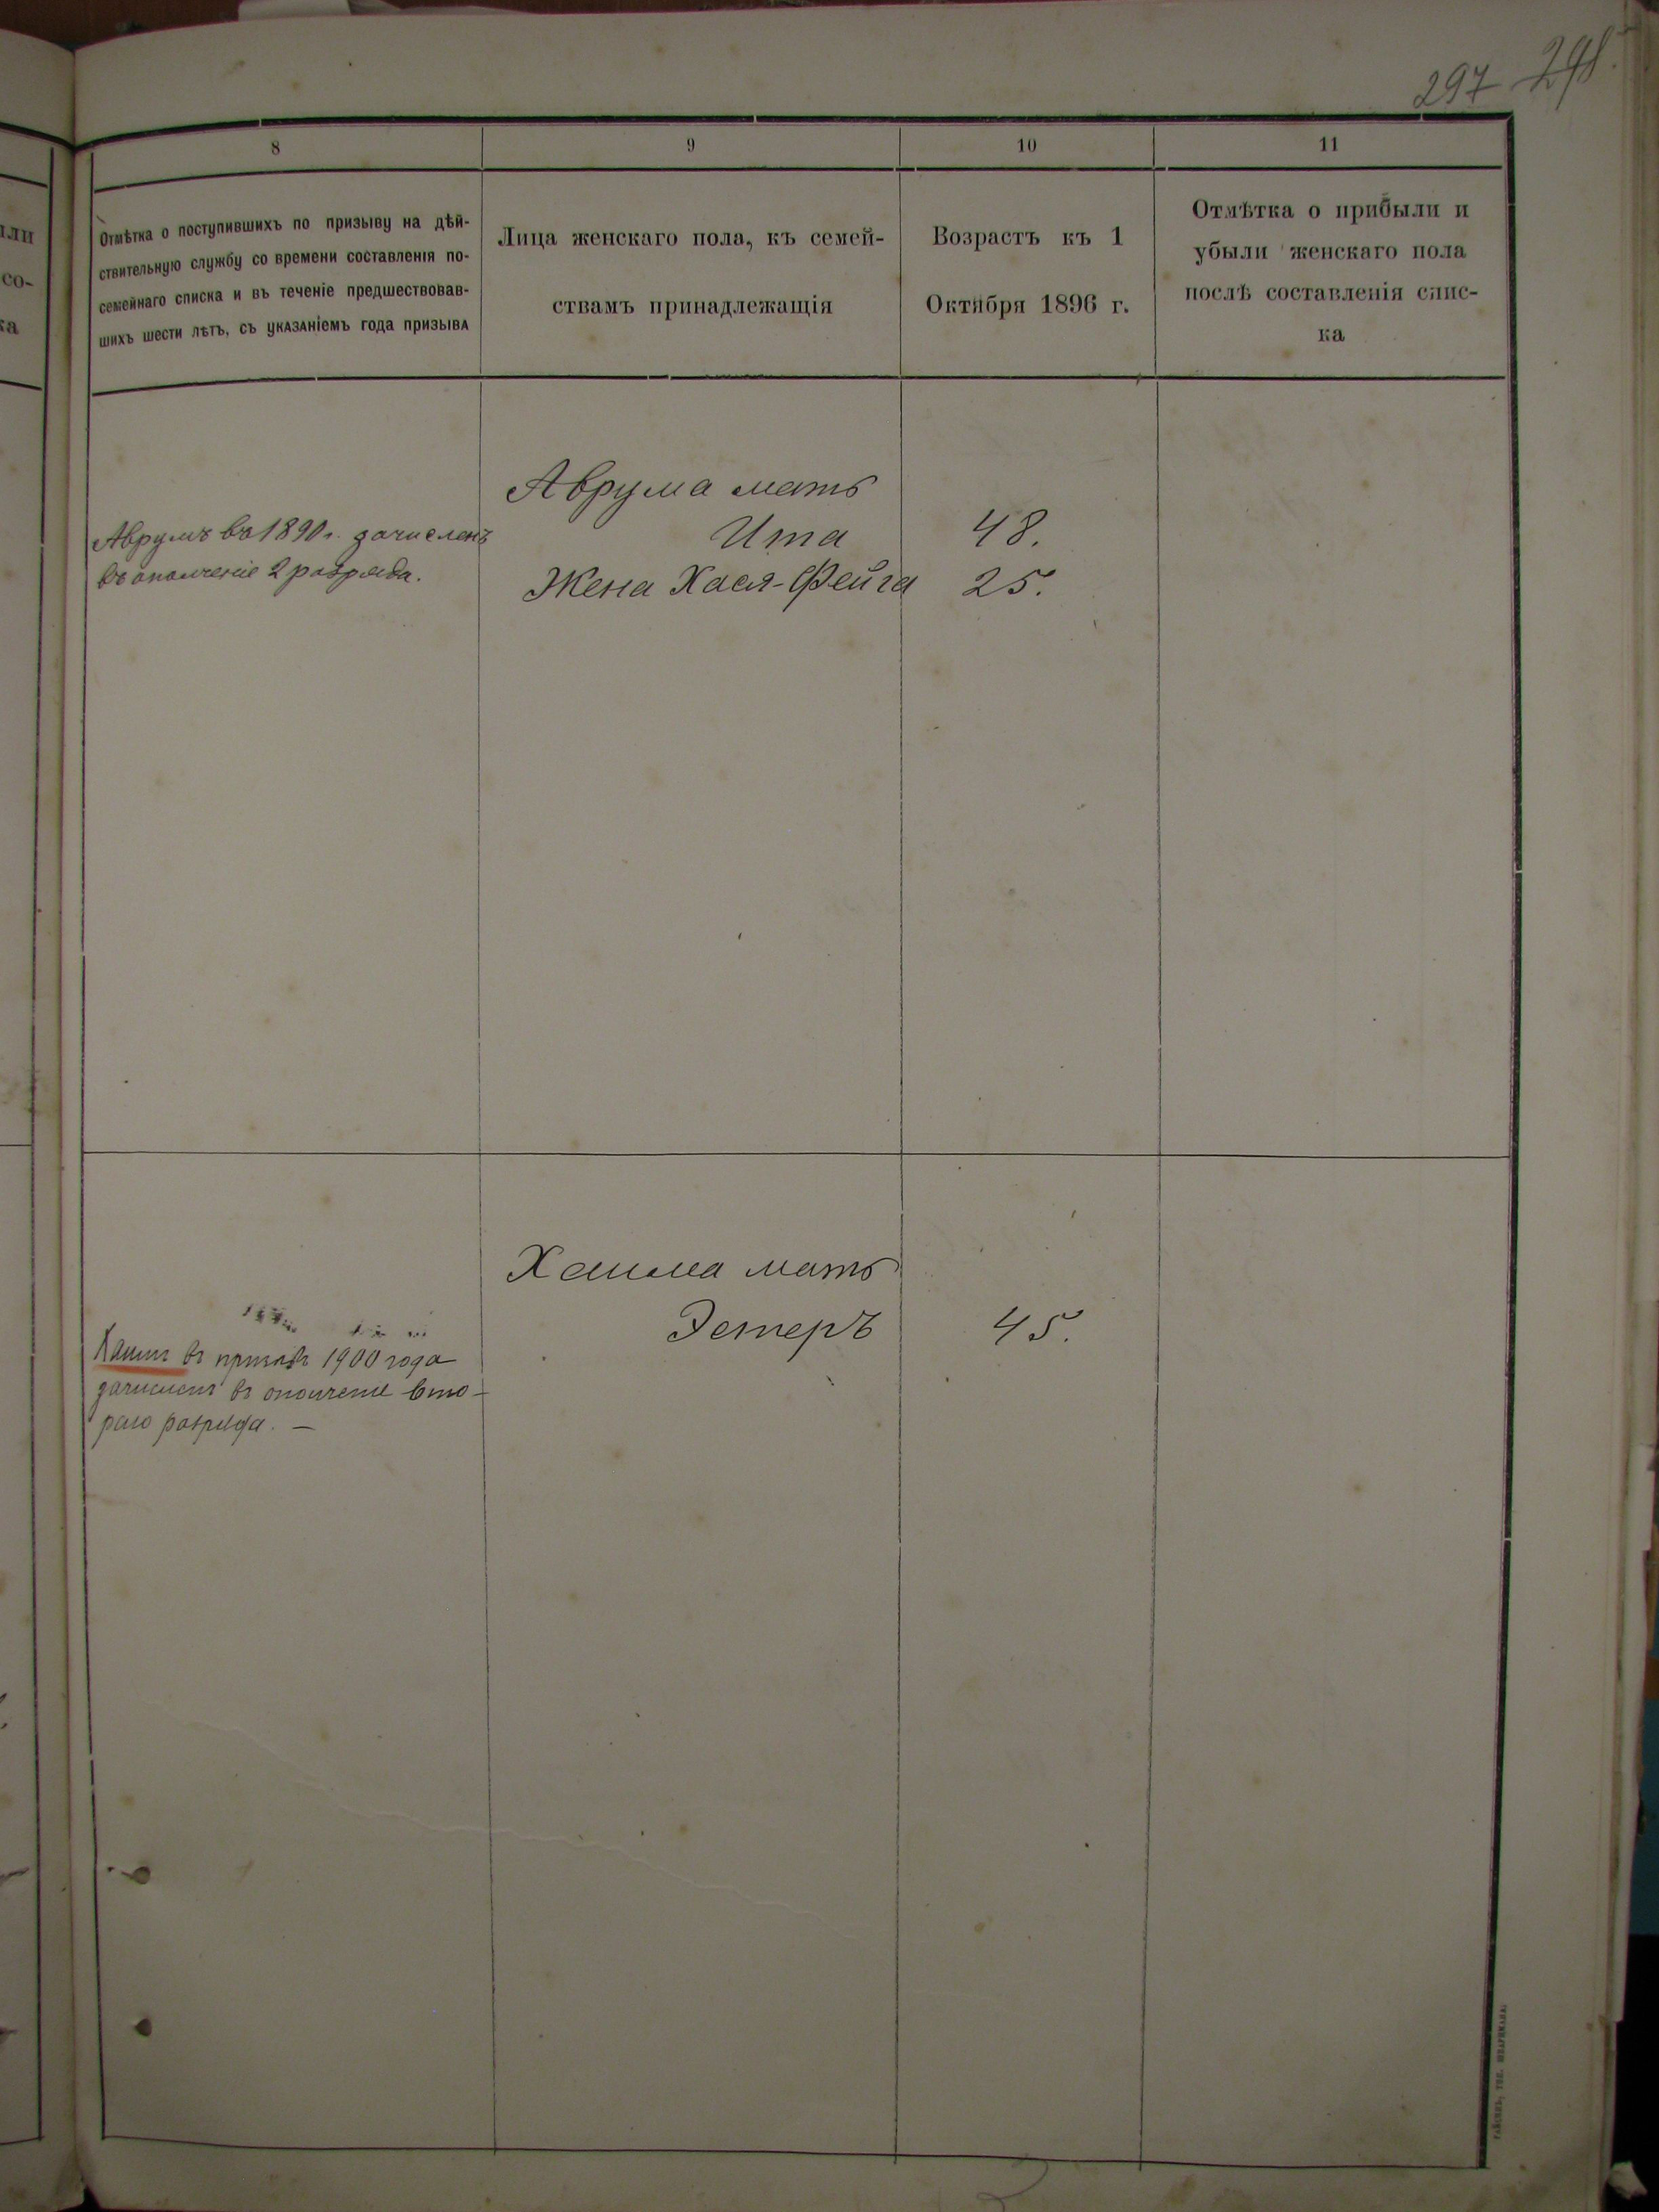 297 298.
8
9
10
11
Отмѣтка о поступившихъ по призыву на дѣй-
ствительную службу со времени составленія по-
семейнаго списка и въ теченіе предшествовав-
шихъ шести лѣтъ, съ указаніемъ года призыва
Лица женскаго пола, къ семей-
ствамъ принадлежащія
Возрастъ къ 1
Октября 1896 г.
Отмѣтка о прибыли и
убыли женскаго пола
послѣ составленія спис-
ка
или
со-
ка
Аврумъ въ 1890 г. зачисленъ
въ ополченіе 2 разряда.
Аврума мать
Ита 48.
Жена Хася-Фейга 25.
Хаима мать
Эстеръ 45.
Хаимъ въ призывъ 1900 года
зачисленъ въ ополченіе вто-
раго разряда. —